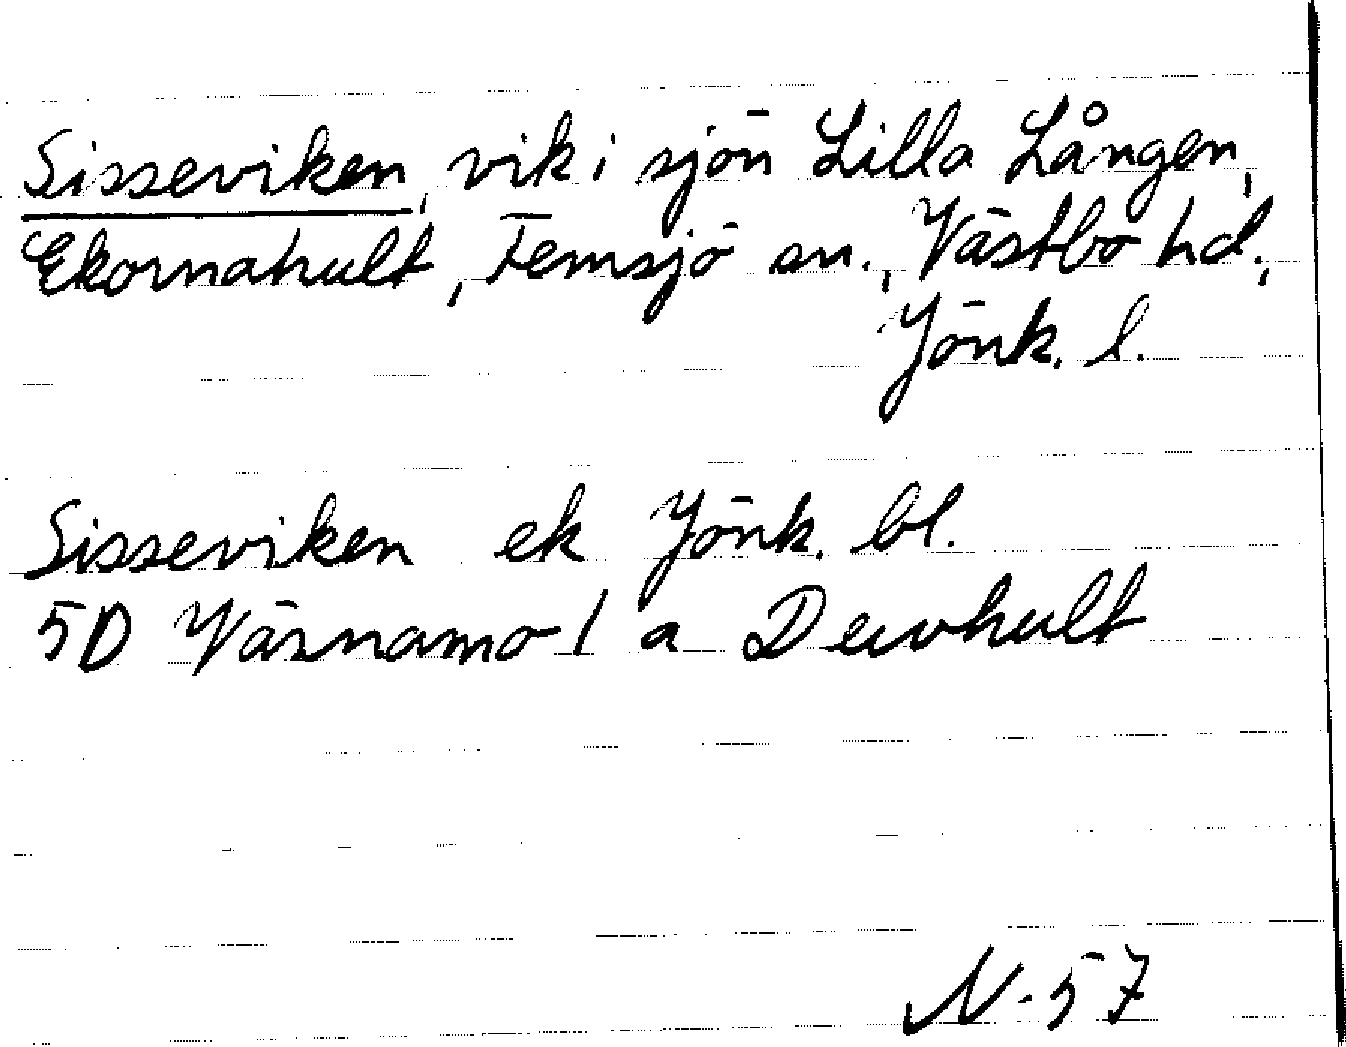 Sisseviken, vik i sjön Lilla Lången,
Ekornahult, Femsjö sn., Västbo hd.,
Jönk. l.
Sisseviken ek Jönk. bl.
5D Värnamo 1 a Deivhult
N-57